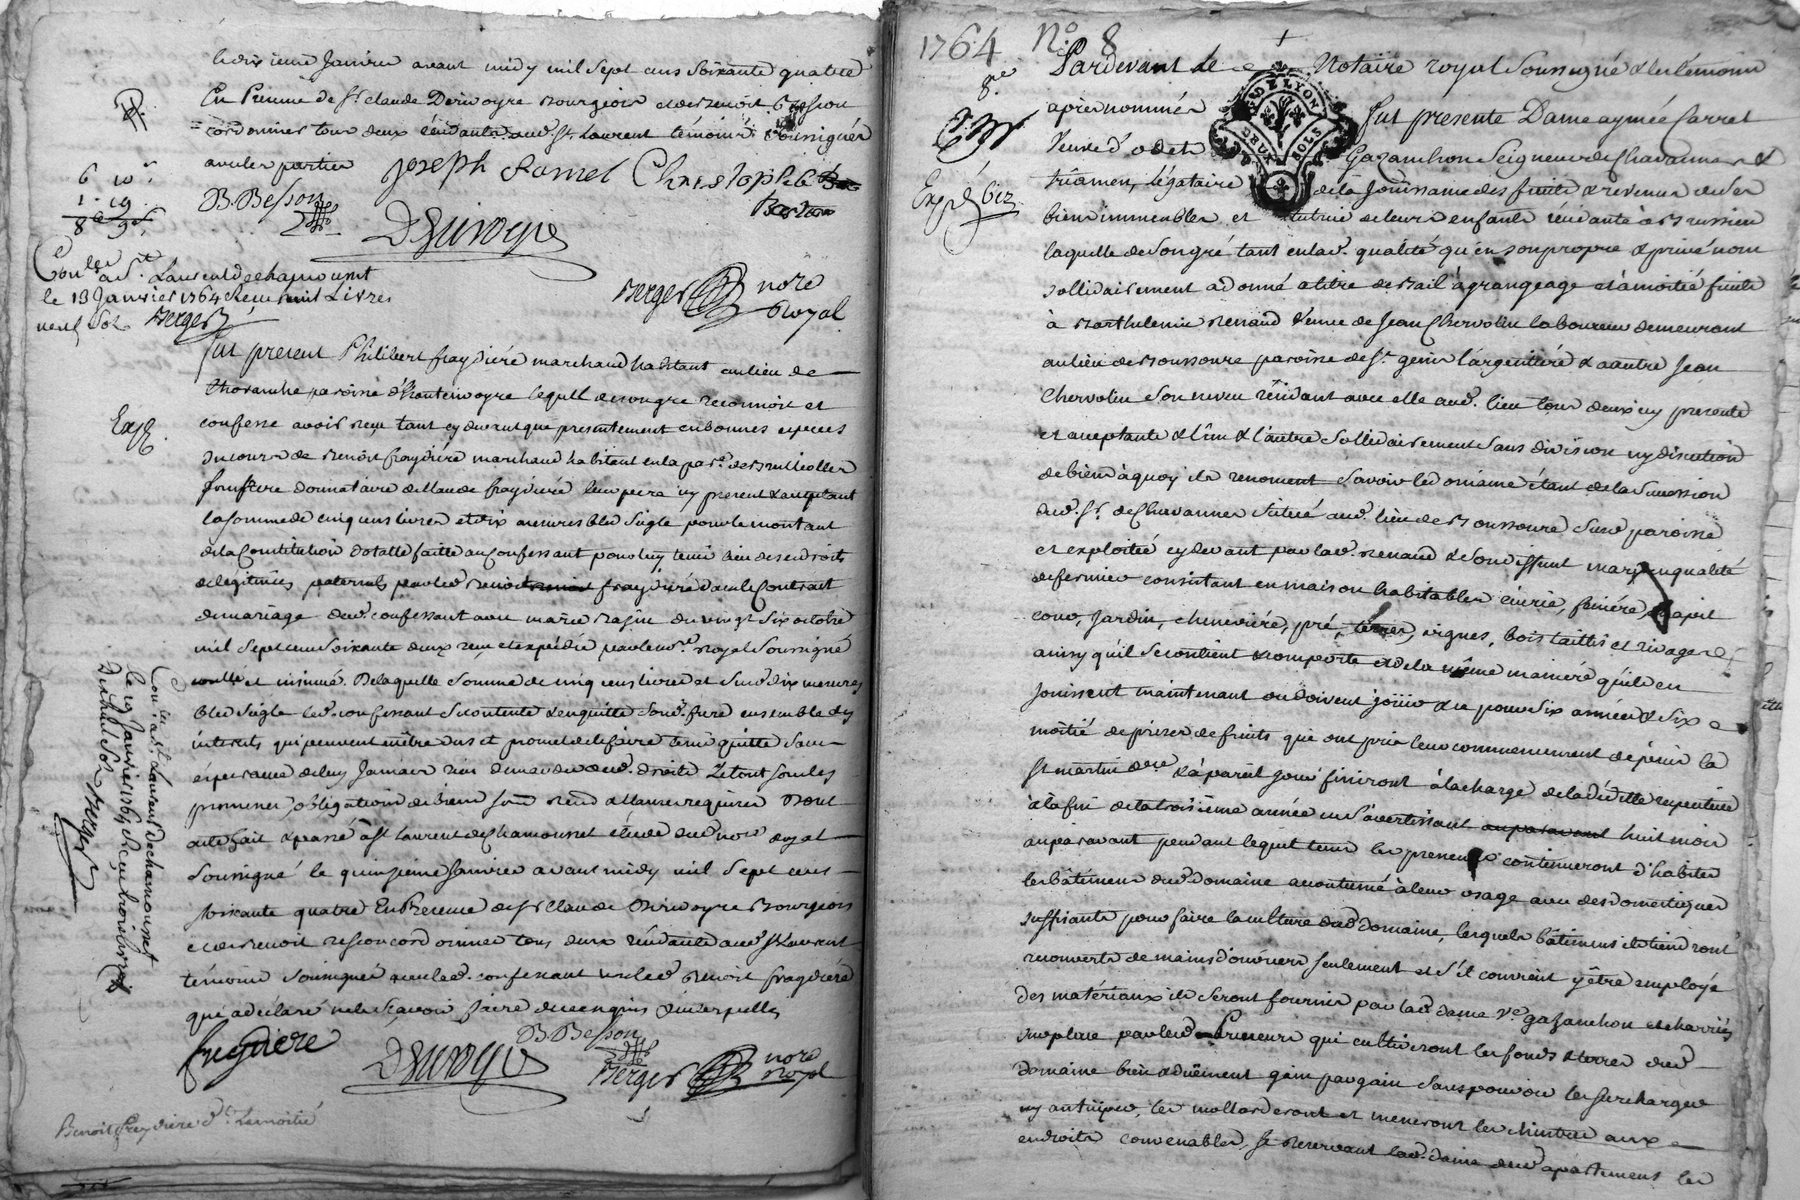 Janvier avant midy mil Sept cens Soixante quatre
En Presence de Sr. Claude Derivoyre Bourgeois et de Benoit Besson
cordonnier tous deux residants aud. St. Laurent témoins Soussignés
avec les parties Joseph Christophle
6 10s.
1. 19
8 9s.
B. Besson
Berton
Deriuoyre
Conlé a St. Laurent de chamousset
le 13 Janvier 1764 Reçu huit Livres
neuf Sols Berger
Berger nore
Royal
fut present Philibert fraydiére marchand habitant au lieu de
paroisse d'hauterivoyre lequel de son gré reconnoit et
Expé.
confesse avoir reçu tant cy devant que presentement en bonnes especes
du cours de Benoit fraydiére marchand habitant en la parse. de Brullioles
son frere donnataire de Claude fraydiére leur pere cy present & acceptant
la somme de cinq cens livres et dix mesures bled Seigle pour le montant
de la Constitution dotalle faitte au confessant pour luy tenir lieu de ses droits
de legitimes paternels par led. Benoit fraydiére dans le Contrait
de mariage dud. confessant avec marie du vingt Six octobre
mil Sept cens Soixante deux reçu et expédié par le nore. royal Soussigné
conllé et insinué. De laquelle Somme de cinq cens livres et Susd. dix mesures
bled Seigle led. confessant Se contente & en quitte Sond. frere ensemble des
interets qui peuvent en être dus et promet de l'en faire tenir quitte Sans
esperance de luy Jamais rien demander desd. droits Le tout Sous les
promesses, obligation de biens renond & clauses requises Dont
acte fait & passé a St. Laurent de Chamousset étude dud. nore royal
Soussigné le quinzieme Janvier avant midy mil Sept cens
Soixante quatre En Presence de Sr. Claude Deriuoyre Bourgeois
et de Benoit Besson cordonnier tous deux résidants aud. St. Laurent
témoins Soussignés avec led. confessant non led. Benoit fraydiére
qui a déclaré ne le Sçavoir faire de ce enquis & interpellé
Conlé a St. Laurent de chamousset
le 19 Janvier 1764 Reçu trois livres
dix huit Sols Berger
fraydiere
Deriuoyre
B. Besson
Berger nore
Royal
Benoit Freydiere
1764 No. 8
Pardevant Le Notaire royal Soussigné & les témoins
8.re
après nommés fut presente Dame aymée Carret
GD. DE LYON
DEUX SOLS
Veuve d'odet Gazanchon Seigneur de Chavannes &
Expé. bis
légataire de la Jouissance des fruits & revenus de Ses
biens immeubles et tutrice de leurs enfants résidante à Brussieu
laquelle de Son gré tant en lad. qualité qu'en son propre & privé nom
sollidairement a donné a titre de Bail à grangeage et à moitié fruits
à Barthelemie Renaud Veuve de Jean Chervolin laboureur demeurant
au lieu de paroisse de St. genis l'argentiére & a autre Jean
Chervolin Son neveu résidant avec elle aud. lieu tous deux cy presents
et acceptants & l'un & l'autre Sollidairement Sans division ny discution
de biens à quoy ils renoncent Savoir le domaine étant de la Succession
dud. Sr. de Chavannes Situé aud. lieu de Susd. paroisse
et exploité cy devant par lad. Renaud & Son deffunt mary en qualité
de fermier consistant en maison habitables écurie, feniére,
cour, Jardin, cheneviére, pré, terres, vignes, bois taillis et rivages
ainsy qu'il Se contient & comporte et de la même maniére qu'ils en
Jouissent maintenant ou doivent jouir & ce pour Six années & Six
moitié de prises de fruits qui ont pris leur commencement depuis la
St. martin dere. & à pareil jour finiront à la charge de
à la fin de la troisième année en S'avertissant huit mois
auparavant pendant lequel tems les preneurs continueront d'habiter
les bâtiments dud. Domaine accoutumé à leur usage avec des domestiques
suffisants pour faire la culture dud. domaine, lesquels bâtiments ils tiendront
recouverts de mains d'ouvriers seulement et s'il convient y être employé
des matériaux ils seront fournis par lad. dame Ve. gazanchon et charriés
sur place par lesd. Preneurs qui cultiveront les fonds & terres dud.
domaine bien & duëment gain par gain Sans pouvoir les Surcharger
ny anticiper, les et meneront les aux
endroits convenables, Se Reservant lad. dame les